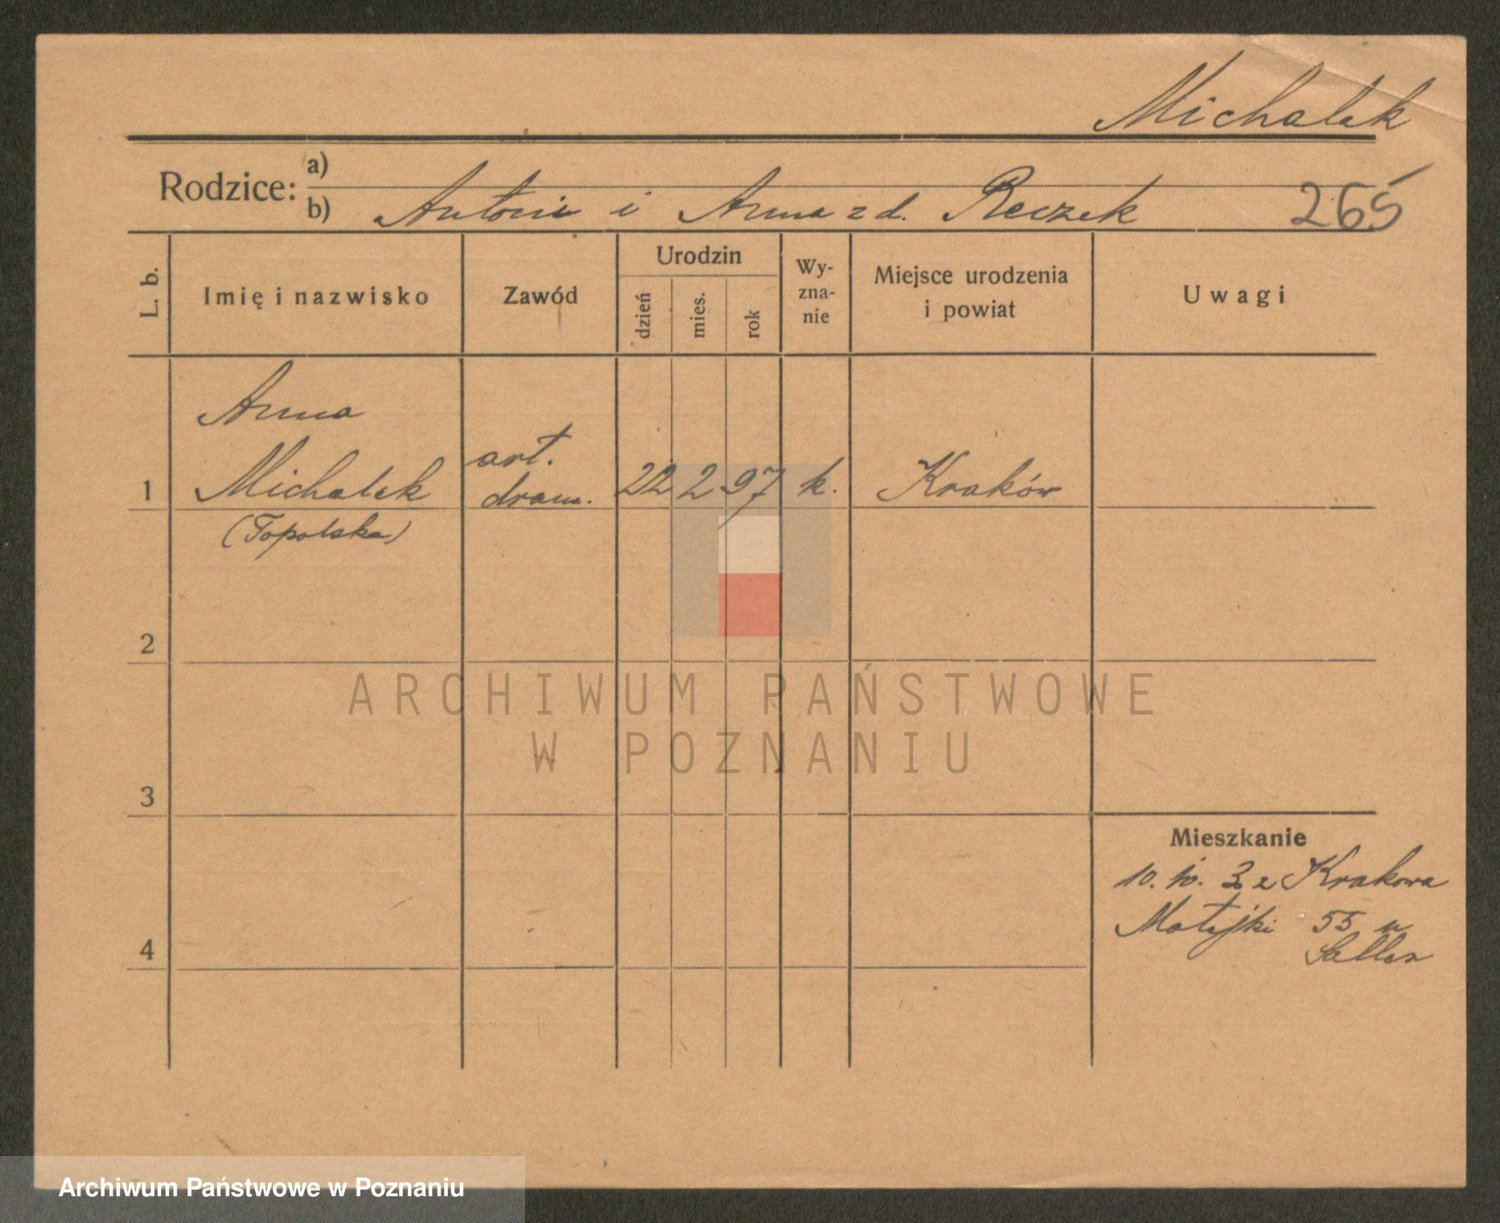 Michalek
Rodzice: a)
b) Antoni i Anna z d. Reczek 265
L. b.
Imię i nazwisko
Zawód
Urodzin
dzień
mies.
rok
Wy-
zna-
nie
Miejsce urodzenia
i powiat
Uwagi
Anna
1 Michalek art. dram. 22 2 97 k. Kraków
(Topolska)
2
3
4
Mieszkanie
10. 10. z Krakowa
Matejki 55 u
ARCHIWUM PAŃSTWOWE
W POZNANIU
Archiwum Państwowe w Poznaniu